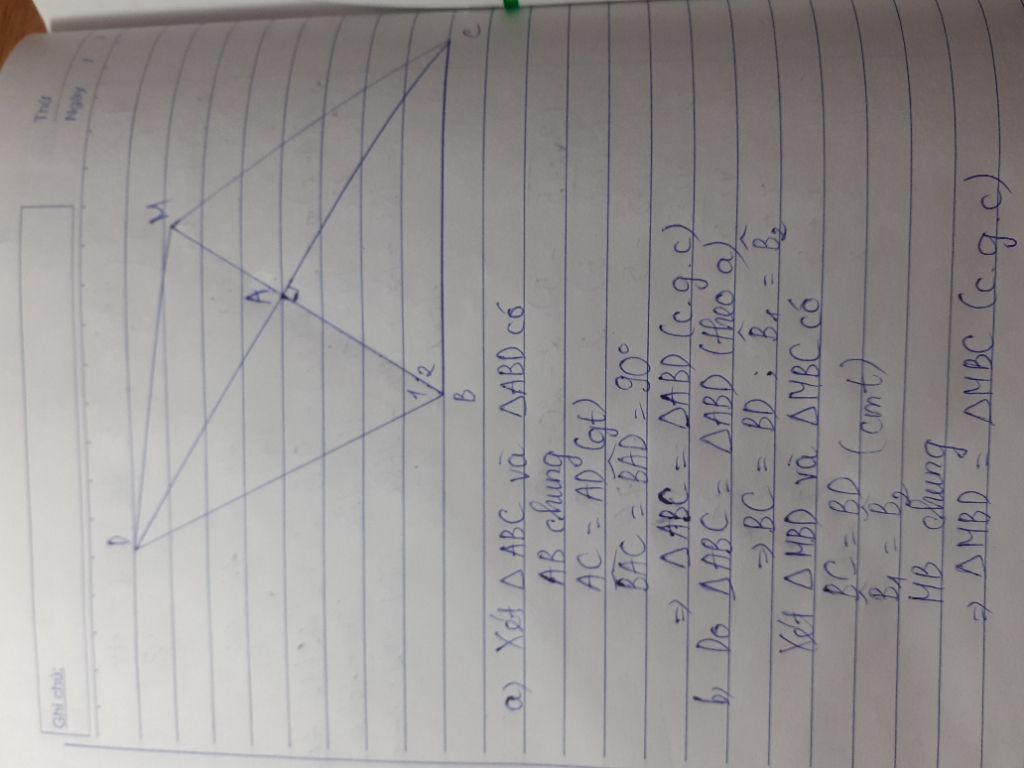 Ghi chú:
Thứ
Ngày
D
M
A
1 2
B
C
a) Xét Δ ABC và ΔABD có
AB chung
AC = AD (gt)
\widehat{BAC} = \widehat{BAD} = 90°
⇒ Δ ABC = ΔABD (c.g.c)
b) Do ΔABC = ΔABD (theo a)
⇒ BC = BD ; \widehat{B}₁ = \widehat{B}₂
Xét Δ MBD và Δ MBC có
BC = BD (cmt)
\widehat{B}₁ = \widehat{B}₂
MB chung
⇒ ΔMBD = ΔMBC (c.g.c)